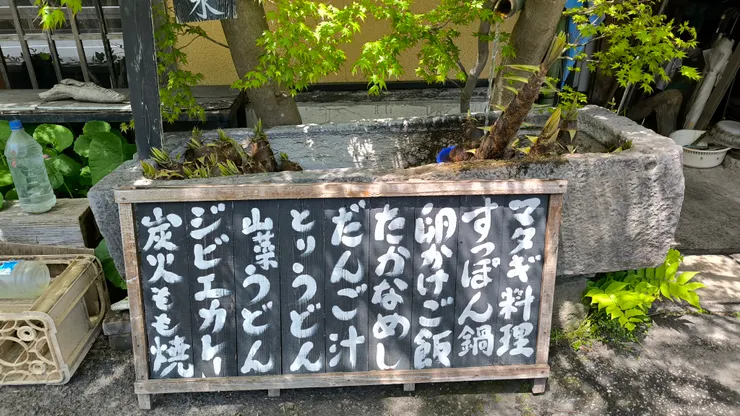 水
マタギ料理
すっぽん鍋
卵かけご飯
たかなめし
だんご汁
とりうどん
山菜うどん
ジビエカレー
炭火もも焼